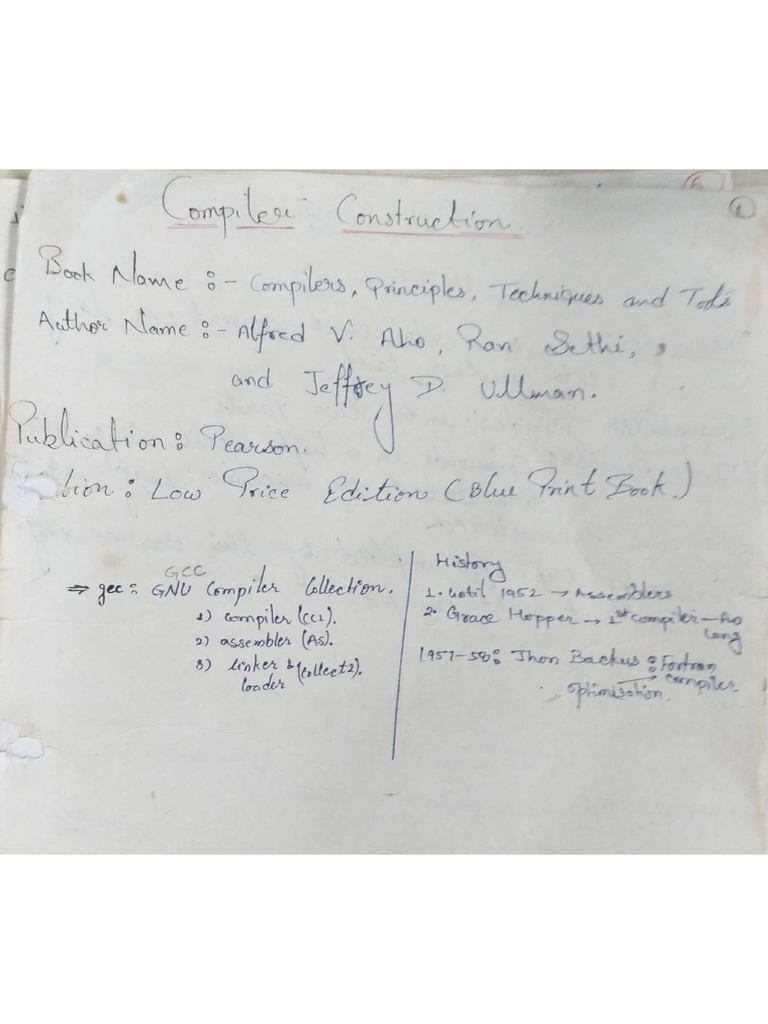 1
Compiler Construction.
Book Name :- Compilers, Principles, Techniques and Tools
Author Name :- Alfred V. Aho, Ravi Sethi,
and Jeffrey D. Ullman.
Publication : Pearson.
Edition : Low Price Edition (Blue Print Book.)
GCC
⇒ gcc : GNU Compiler Collection.
1) compiler (CC1).
2) assembler (As).
3) linker & (collect2).
loader
History
1. until 1952 → Assemblers
2. Grace Hopper → 1st compiler – A0
lang
1957-58 : Jhon Backus : Fortran
compiler
optimization.